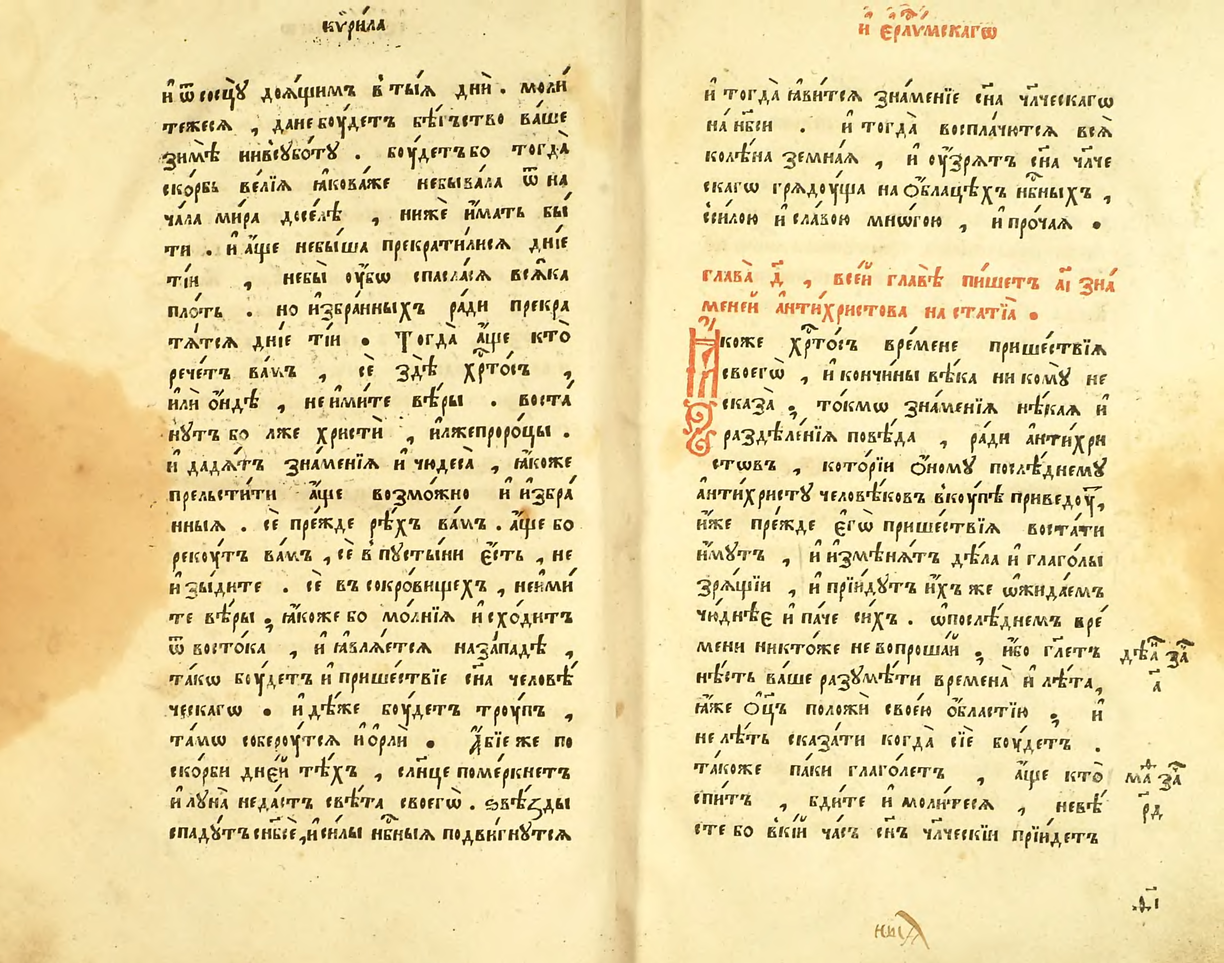 кѷри́ла
и҆ ѿ сосцꙋ̀ доѧ́щимъ в ты́ѧ дни̑ . моли́
тежесѧ , дане боу́детъ бѣ́гъство ва́ше
зимѣ̀ нивсꙋбо́тꙋ . боу́детъ бо тогда̀
ско́рбь ве́лїѧ ꙗ҆кова́же небыва́ла ѿ на
ча́ла ми́ра досе́лѣ , нижѐ и҆́мать бы́
ти . и҆ а҆́ще небы́ша прекрати́лисѧ дні́е
ті́и , небы̀ оу҆́бѡ спасла́сѧ всѧ́ка
пло́ть . но и҆збра́нныхъ ра́ди прекра
тѧ́тсѧ дні́е ті́и . Тогда̀ а҆́ще кто̀
рече́тъ ва́мъ , сѐ здѣ̀ хрⷭ҇то́съ ,
и҆лѝ ѻ҆́ндѣ , не и҆ми́те вѣ́ры . воста́
нꙋтъ бо лже христѝ , и҆лжепроро́цы .
и҆ дадѧ́тъ зна́менїѧ и҆ чюдеса̀ , ꙗ҆́коже
прельсти́ти а҆́ще возмо́жно и҆ и҆збра́
нныѧ . сѐ пре́жде рѣ́хъ ва́мъ . а҆́ще бо
рекоу́тъ ва́мъ , сѐ в пꙋсты́ни є҆́сть , не
и҆зы́дите . сѐ въ сокро́вищехъ , неими́
те вѣ́ры . ꙗ҆́коже бо мо́лнїѧ и҆схо́дитъ
ѿ восто́ка , и҆ ꙗ҆влѧ́етсѧ наза́падѣ ,
та́кѡ боу́детъ и҆ прише́ствїе сн҃а человѣ́
ческагѡ . и҆дѣ́же боу́детъ троу́пъ ,
та́мѡ соберꙋ́тсѧ и҆ о҆рлѝ . А҆́бїе же по
ско́рби дне́й тѣ́хъ , сл҃нце поме́ркнетъ
и҆ лꙋна̀ неда́стъ свѣ́та своегѡ̀ . ѕвѣ́зды
спадꙋ́тъ снб҃сѐ , и҆ си́лы нбⷭ҇ныѧ подви́гнꙋтсѧ
и҆ є҆рⷭ҇ли́мскагѡ
и҆ тогда̀ ꙗ҆́витсѧ зна́менїе сн҃а чл҃ческагѡ
на нб҃си . и҆ тогда̀ воспла́чютсѧ всѧ̀
колѣ́на земна́ѧ , и҆ оу҆́зрѧтъ сн҃а чл҃че
скагѡ грѧдоу́ща на ѻ҆́блацѣхъ нбⷭ҇ныхъ ,
сси́лою и҆ сла́вою мно́гою , и҆ про́чаѧ .
глава̀ д҃ , всей главѣ̀ пи́шетъ а҃і зна́
меней а҆нти́христова на статїа̀ .
Ꙗ҆́коже хрⷭ҇то́съ вре́мене прише́ствїѧ
своегѡ̀ , и҆ кончи́ны вѣ́ка ни комꙋ̀ не
сказа̀ , то́кмѡ зна́менїѧ нѣ́каѧ и҆
раздѣле́нїѧ повѣ́да , ра́ди а҆нти́хри
стѡвъ , кото́рїи ѻ҆́номꙋ послѣ́днемꙋ
а҆нти́христꙋ человѣ́ковъ вкоу́пѣ приведоу́т ,
и҆́же пре́жде є҆гѡ̀ прише́ствїѧ воста́ти
и҆́мꙋтъ , и҆ и҆змѣнѧ́тъ дѣ́ла и҆ глаго́лы
зрѧ́щїи , и҆ прїи́дꙋтъ и҆́хъ же ѡ҆жида́емъ
чю́днѣе и҆ па́че си́хъ . ѡ҆послѣ́днемъ вре́
мени никто́же не вопроша́й , и҆́бо гл҃етъ
нѣ́сть ва́ше разꙋмѣ́ти времена̀ и҆ лѣ́та ,
ꙗ҆̀же ѻ҆ц҃ъ положѝ свое́ю ѻ҆́бластїю , и҆
не лѣ́ть сказа́ти когда̀ сїѐ боу́детъ .
та́коже па́ки глаго́летъ , а҆́ще кто̀
спи́тъ , бди́те и҆ моли́тесѧ , невѣ́
сте бо в кі́й ча́съ сн҃ъ чл҃ческїи прїи́детъ
дѣⷽ҇а за҃
а҃
маⷴ за҃
рд